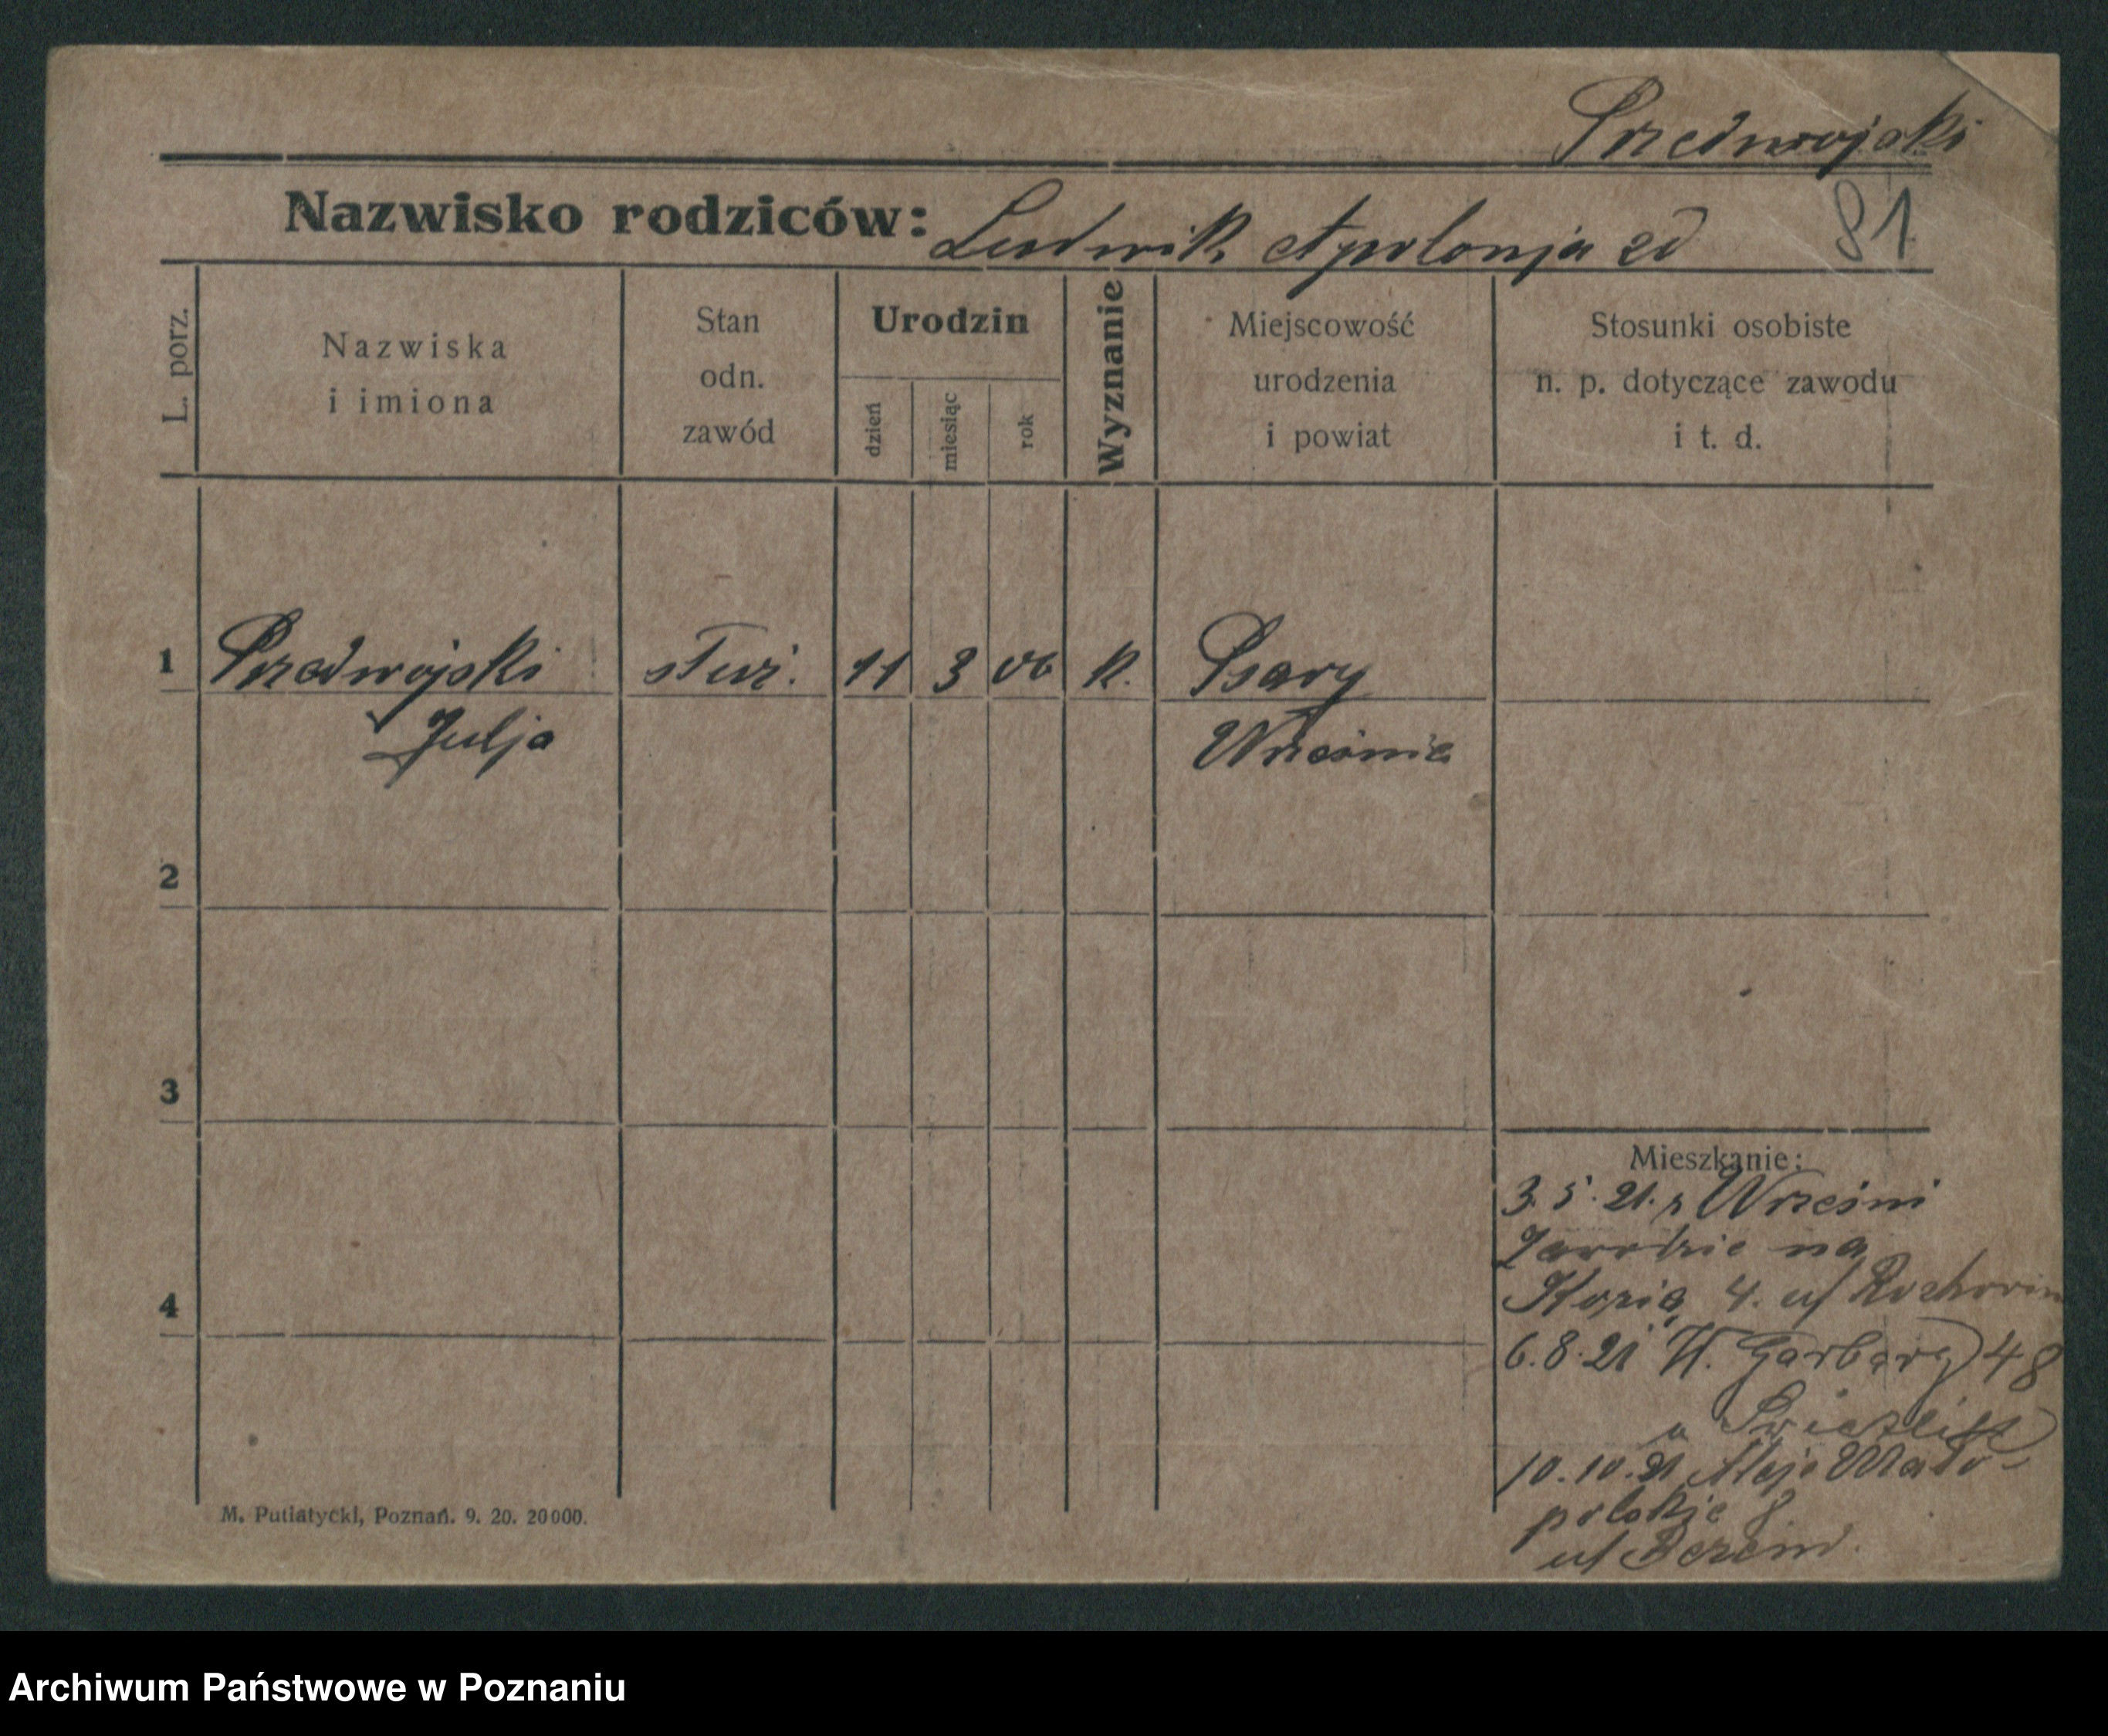 Przedwojski
Nazwisko rodziców: Ludwik Apolonja zd
81
L. porz.
Nazwiska
i imiona
Stan
odn.
zawód
Urodzin
dzień
miesiąc
rok
Wyznanie
Miejscowość
urodzenia
i powiat
Stosunki osobiste
n. p. dotyczące zawodu
i t. d.
1 Przedwojski służ. 11 3 06 k. Psary
Julja Września
2
3
4
Mieszkanie:
3. 5. 21. z Wrześni
na
Kozia 4. u/
6.8.21 W. Garbary 48
u
10.10.21 Aleje Mało-
polskie 8
u/
M. Putiatycki, Poznań. 9. 20. 20000.
Archiwum Państwowe w Poznaniu